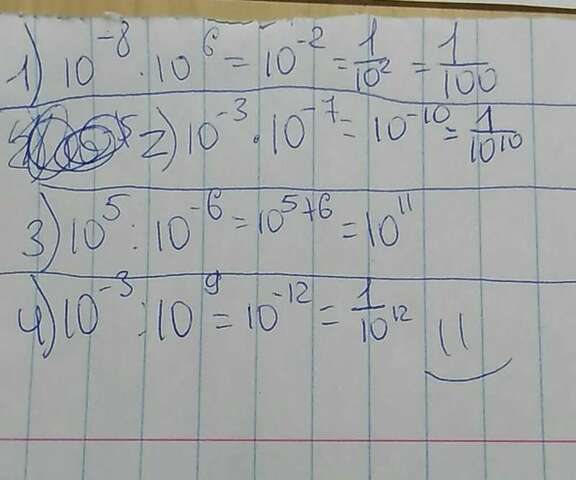 1) 10⁻⁸ · 10⁶ = 10⁻² = 1/10² = 1/100
2) 10⁻³ · 10⁻⁷ = 10⁻¹⁰ = 1/10¹⁰
3) 10⁵ : 10⁻⁶ = 10⁵⁺⁶ = 10¹¹
4) 10⁻³ : 10⁹ = 10⁻¹² = 1/10¹²